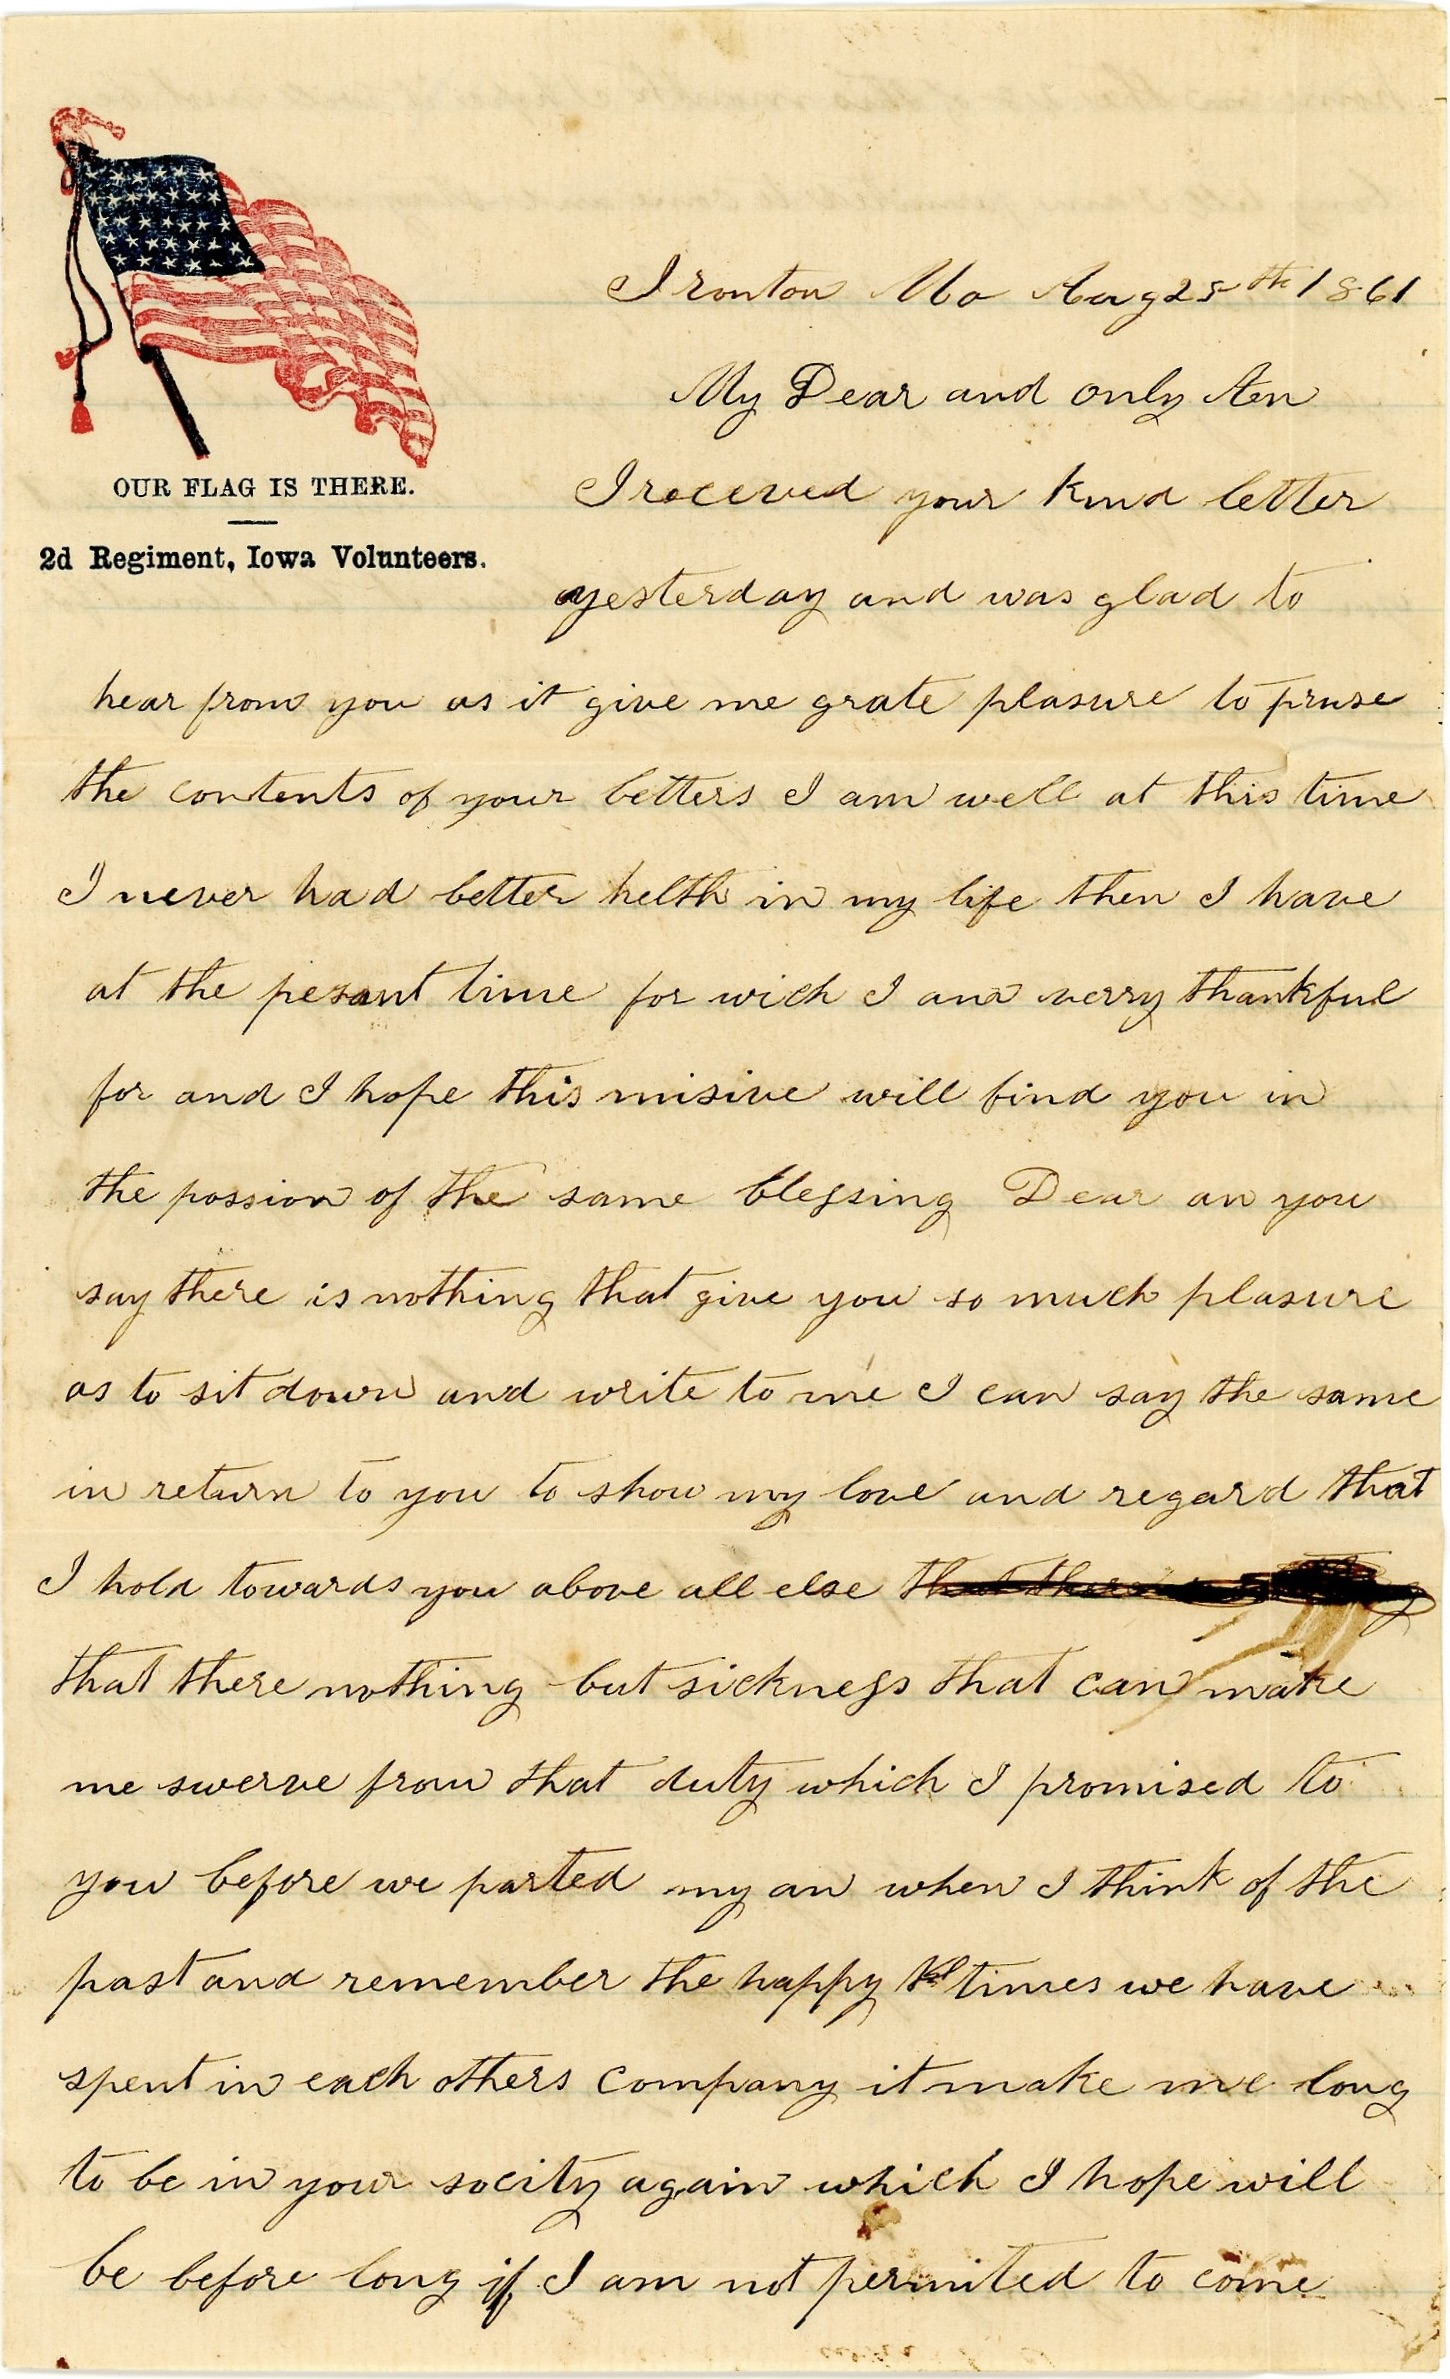 OUR FLAG IS THERE.
2d Regiment, Iowa Volunteers.
Ironton Mo Aug 25th 1861
My Dear and only An
I receved your kind letter
yesterday and was glad to
hear from you as it give me grate plasure to pruse
the contents of your letters I am well at this time
I never had better helth in my life then I have
at the pesant time for wich I am verry thankful
for and I hope this misive will find you in
the possion of the same blessing Dear an you
say there is nothing that give you so much plasure
as to sit down and write to me I can say the same
in return to you to show my love and regard that
I hold towards you above all else that there
that there nothing but sickness that can make
me swerve from that duty which I promised to
you before we parted my an when I think of the
past and remember the happy times we have
spent in each others company it make me long
to be in your socity again which I hope will
be before long if I am not permited to come